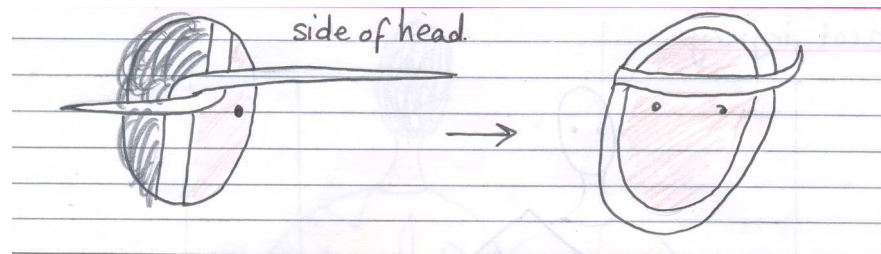 side of head.